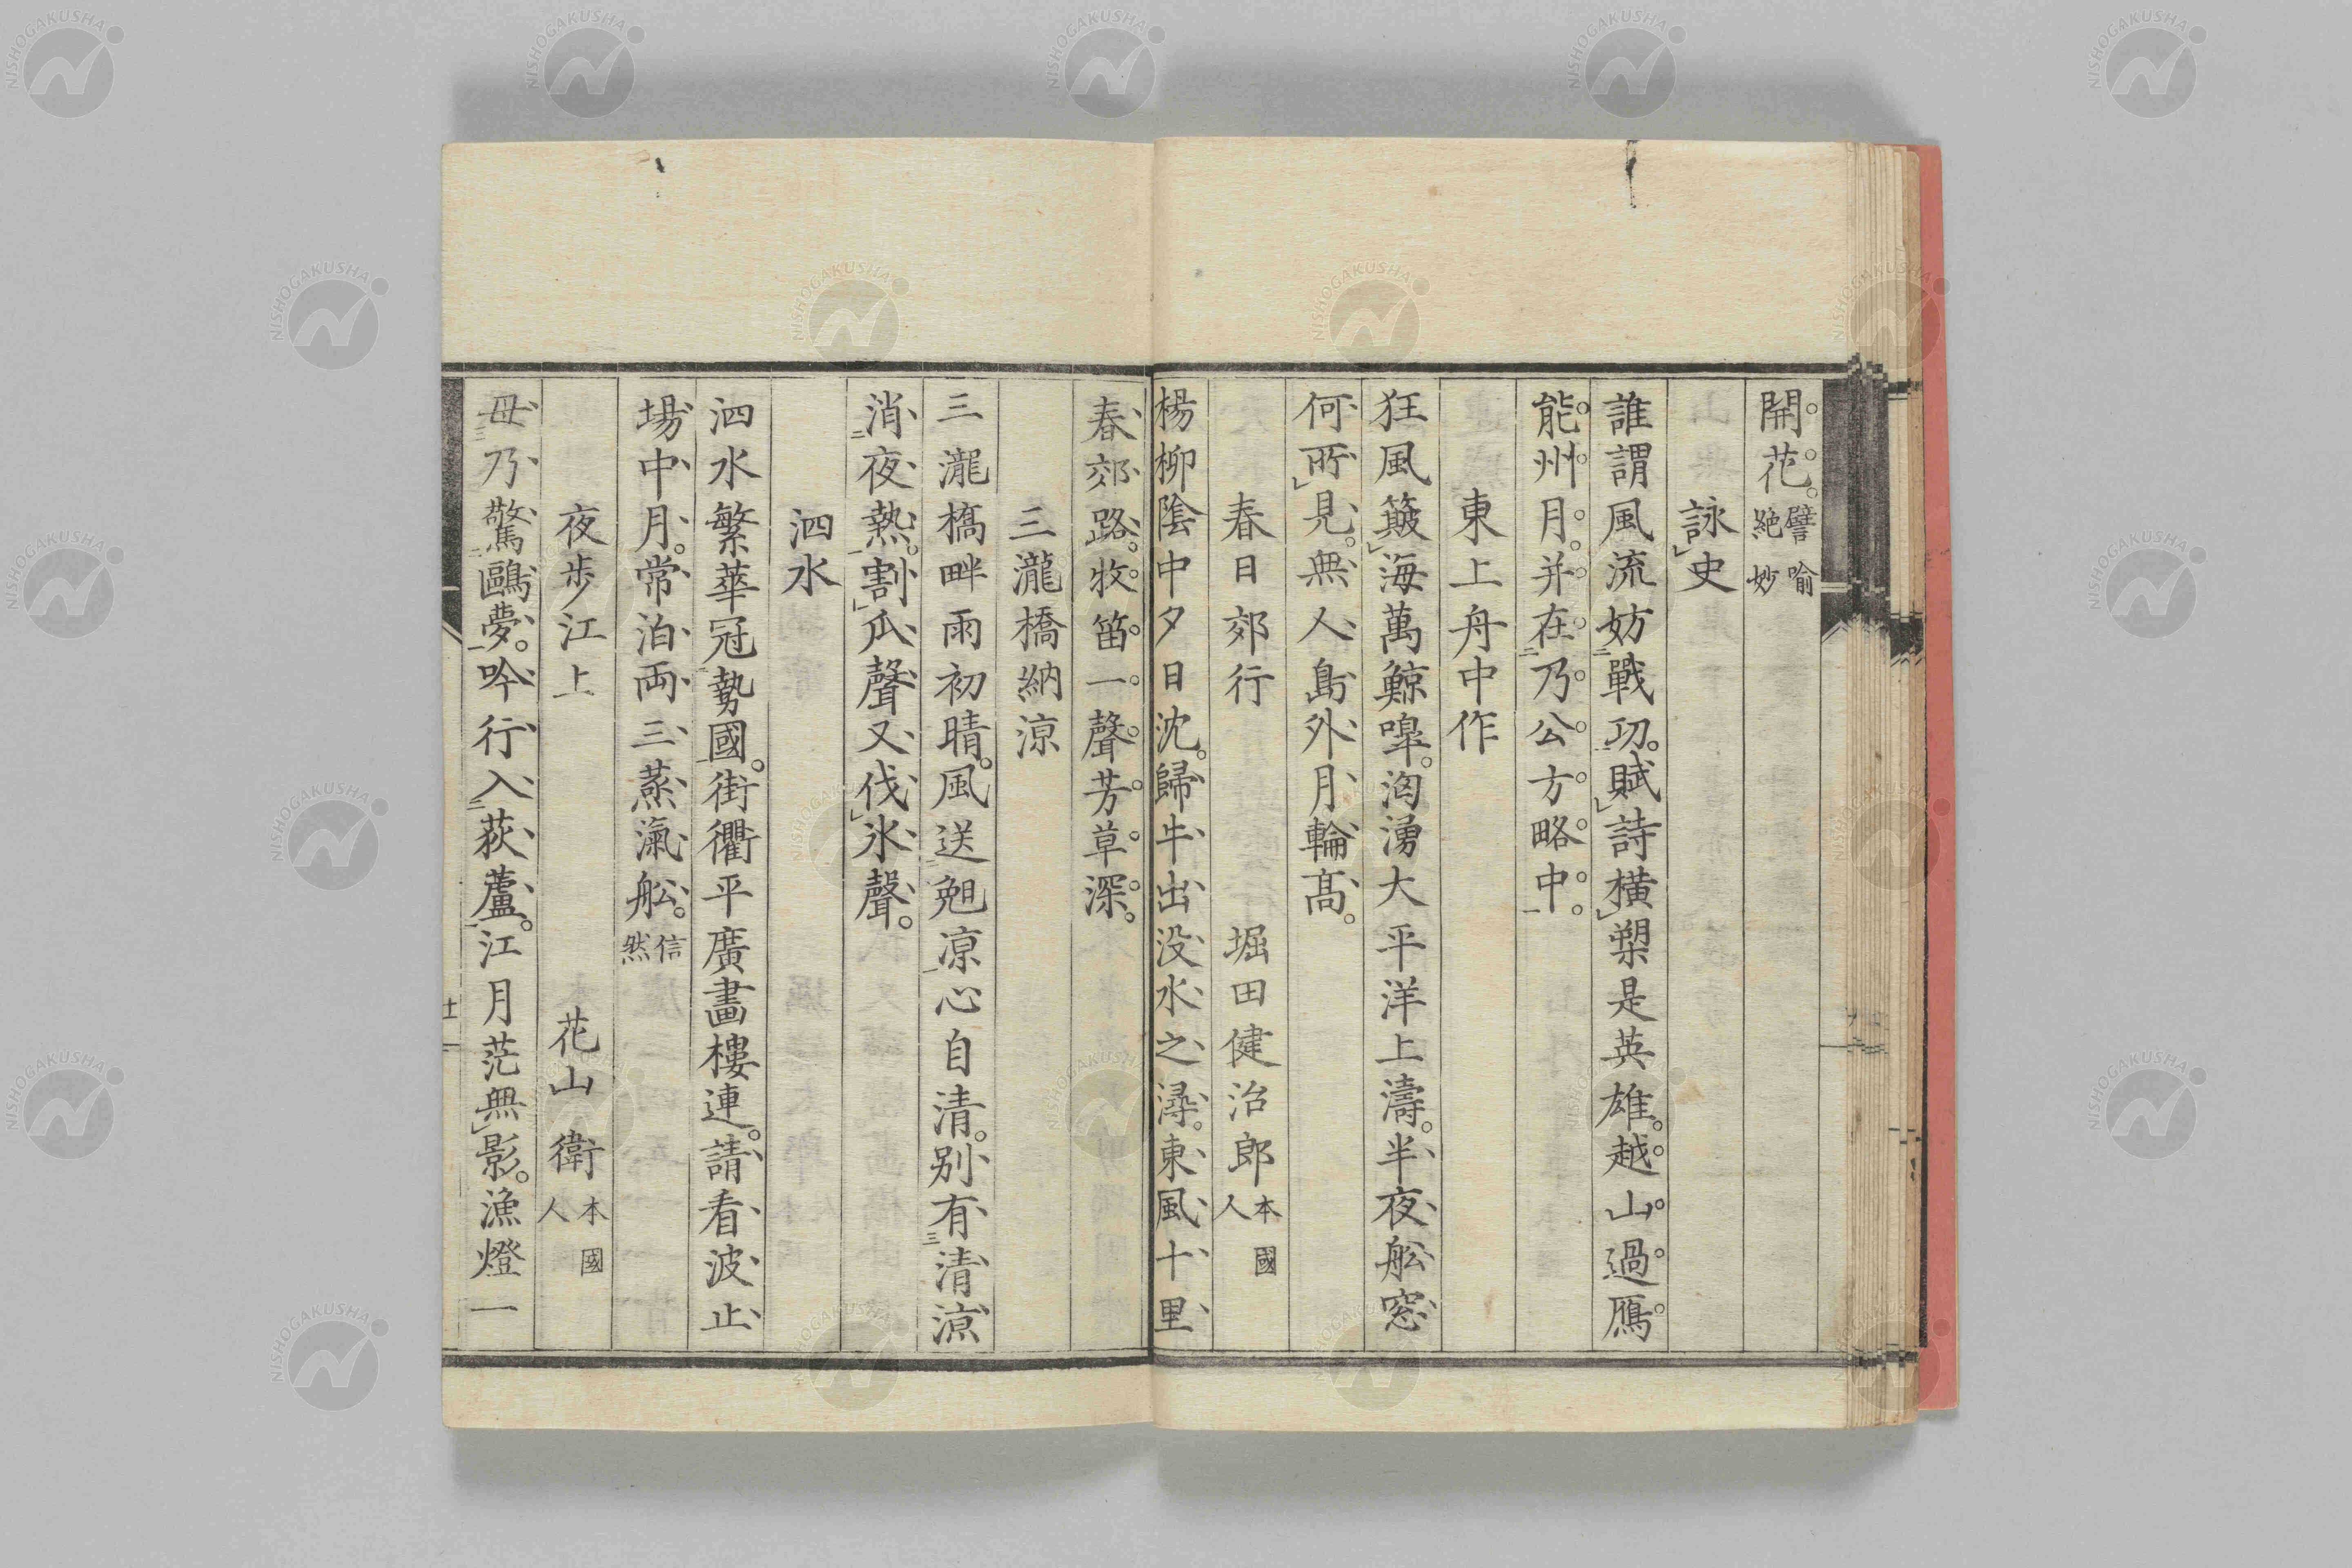 開花。譬喻絶妙
詠史
誰謂風流妨戰功。賦詩橫槊是英雄。越山過鴈
能州月。并在乃公方略中。
東上舟中作
狂風簸海萬鯨嘷。洶湧大平洋上濤。半夜舩窓
何所見。無人島外月輪高。
春日郊行　堀田健治郎本國人
楊柳陰中夕日沈。歸牛出没水之潯。東風十里
春郊路。牧笛一聲芳草深。
三瀧橋納涼
三瀧橋畔雨初晴。風送兔凉心自清。別有清凉
消夜熱。割瓜聲又伐氷聲。
泗水
泗水繁華冠勢國。街衢平廣畫樓連。請看波止
場中月。常泊両三蒸滊舩。信然
夜歩江上　花山衛本國人
毋乃驚鷗夢。吟行入荻蘆。江月茫無影。漁燈一
NISHOGAKUSHA